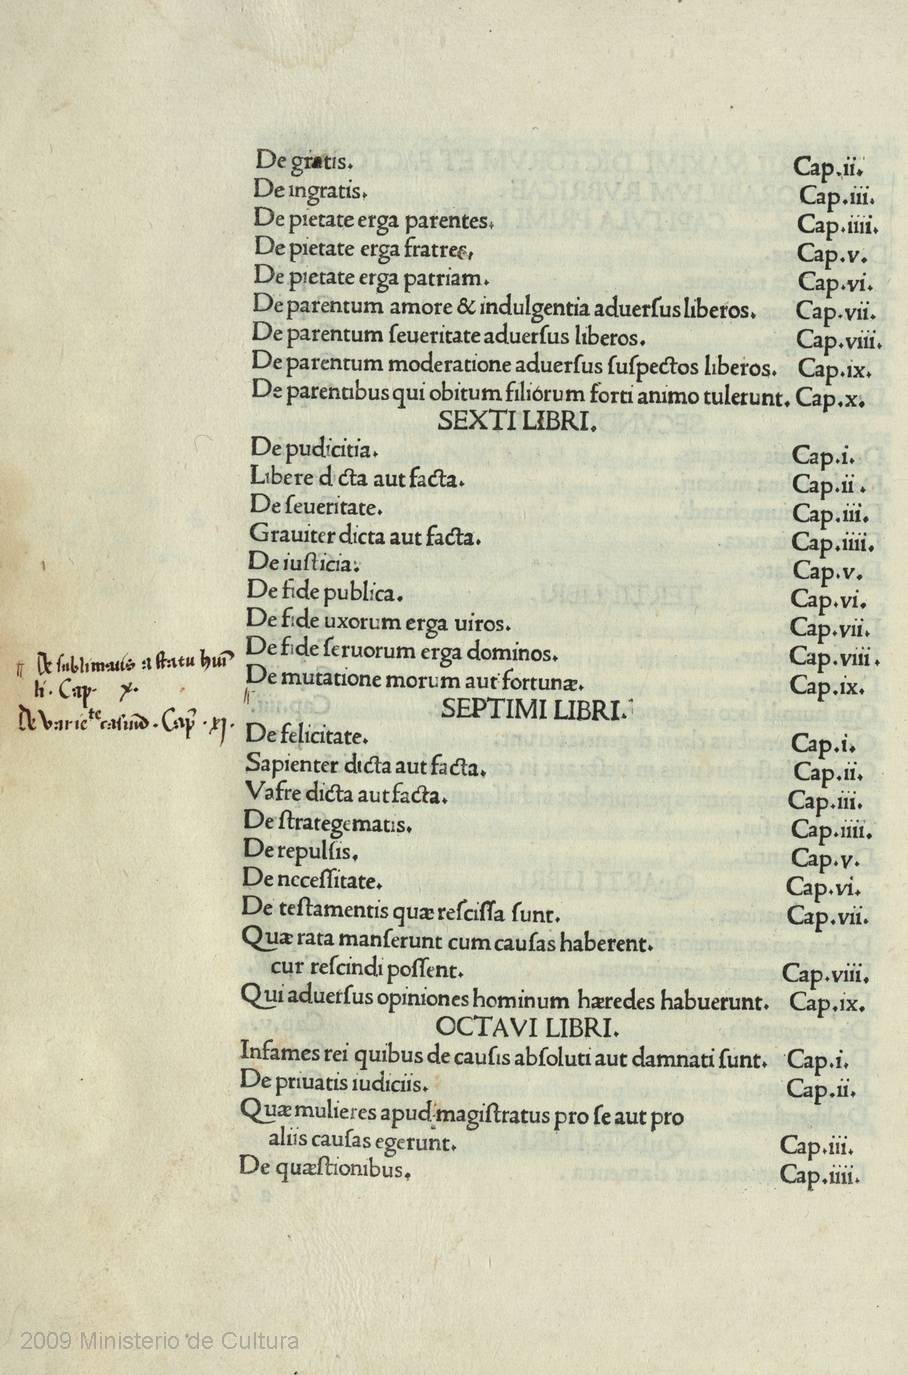 De gratis. Cap.ii.
De ingratis. Cap.iii.
De pietate erga parentes. Cap.iiii.
De pietate erga fratres. Cap.v.
De pietate erga patriam. Cap.vi.
De parentum amore & indulgentia aduerſus liberos. Cap.vii.
De parentum ſeueritate aduerſus liberos. Cap.viii.
De parentum moderatione aduerſus ſuſpectos liberos. Cap.ix.
De parentibus qui obitum filiorum forti animo tulerunt. Cap.x.
SEXTI LIBRI.
De pudicitia. Cap.i.
Libere dicta aut facta. Cap.ii.
De ſeueritate. Cap.iii.
Grauiter dicta aut facta. Cap.iiii.
De iuſticia. Cap.v.
De fide publica. Cap.vi.
De fide uxorum erga uiros. Cap.vii.
De fide ſeruorum erga dominos. Cap.viii.
De mutatione morum aut fortunæ. Cap.ix.
De ſublimatis a ſtatu
Cap. x.
De Cap. xj.
SEPTIMI LIBRI.
De felicitate. Cap.i.
Sapienter dicta aut facta. Cap.ii.
Vafre dicta aut facta. Cap.iii.
De ſtrategematis. Cap.iiii.
De repulſis. Cap.v.
De neceſſitate. Cap.vi.
De teſtamentis quæ reſciſſa ſunt. Cap.vii.
Quæ rata manſerunt cum cauſas haberent.
cur reſcindi poſſent. Cap.viii.
Qui aduerſus opiniones hominum hæredes habuerunt. Cap.ix.
OCTAVI LIBRI.
Infames rei quibus de cauſis abſoluti aut damnati ſunt. Cap.i.
De priuatis iudiciis. Cap.ii.
Quæ mulieres apud magiſtratus pro ſe aut pro
aliis cauſas egerunt. Cap.iii.
De quæſtionibus. Cap.iiii.
2009 Ministerio de Cultura